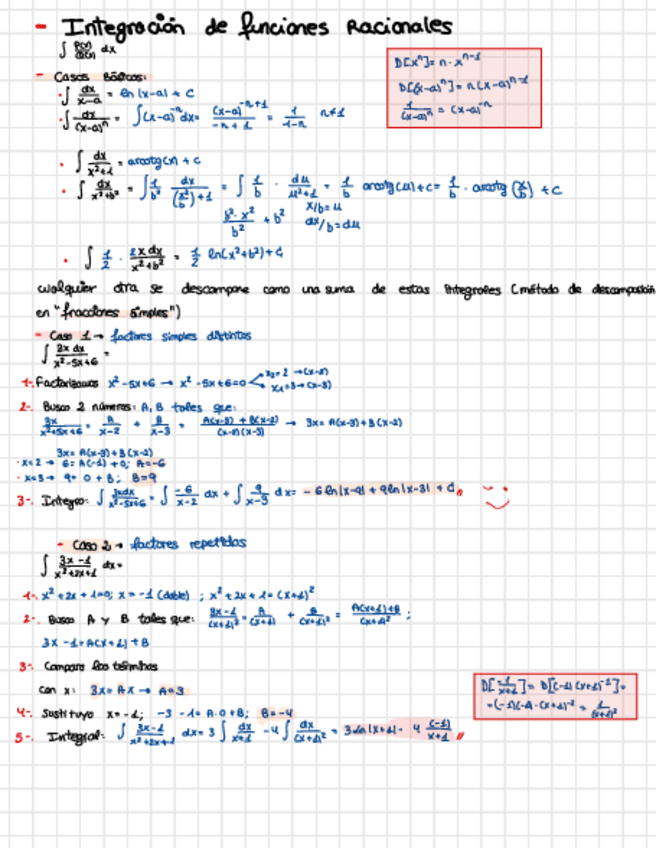 - Integración de funciones Racionales
∫ P(x)/Q(x) dx
D[xⁿ] = n · xⁿ⁻¹
D[(x-a)ⁿ] = n(x-a)ⁿ⁻¹
1/(x-a)ⁿ = (x-a)⁻ⁿ
- Casos Básicos:
· ∫ dx/(x-a) = ln |x-a| + C
· ∫ dx/(x-a)ⁿ = ∫(x-a)⁻ⁿ dx = (x-a)⁻ⁿ⁺¹/(-n+1) = 1/(1-n) n≠1
· ∫ dx/(x²+1) = arcotg(x) + C
· ∫ dx/(x²+b²) = ∫ 1/b² dx/((x/b)²+1) = ∫ 1/b · du/(u²+1) = 1/b arcotg(u)+C = 1/b · arcotg (x/b) + C
b²·x²/b² + b² x/b = u
dx/b = du
· ∫ 1/2 · 2x dx/(x²+b²) = 1/2 ln(x²+b²)+C
cualquier otra se descompone como una suma de estas integrales (método de descomposición
en "fracciones simples")
- Caso 1 → factores simples distintos
∫ 3x dx/(x²-5x+6) =
1-. Factorizamos x²-5x+6 → x²-5x+6=0 x₂=2 → (x-2)
x₁=3 → (x-3)
2-. Busco 2 números: A, B tales que:
3x/(x²-5x+6) = A/(x-2) + B/(x-3) = (A(x-3)+B(x-2))/((x-2)(x-3)) → 3x = A(x-3)+B(x-2)
3x = A(x-3)+B(x-2)
· x=2 → 6 = A(-1)+0; A=-6
· x=3 → 9 = 0+B; B=9
3-. Integro: ∫ 3xdx/(x²-5x+6) = ∫ -6/(x-2) dx + ∫ 9/(x-3) dx = -6 ln|x-2| + 9 ln|x-3| + C //
- Caso 2 → factores repetidos
∫ (3x-1)/(x²+2x+1) dx =
1-. x²+2x+1=0; x=-1 (doble) ; x²+2x+1=(x+1)²
2-. Busco A y B tales que: (3x-1)/(x+1)² = A/(x+1) + B/(x+1)² = (A(x+1)+B)/(x+1)² ;
3x-1 = A(x+1)+B
3-. Comparo los términos
con x: 3x = Ax → A=3
4-. Sustituyo x=-1; -3-1 = A·0+B; B=-4
5-. Integral: ∫ (3x-1)/(x²+2x+1) dx = 3 ∫ dx/(x+1) - 4 ∫ dx/(x+1)² = 3 ln|x+1| - 4 (-1)/(x+1) //
D[-1/(x+1)] = D[(-1)(x+1)⁻¹] =
= (-1)(-1)·(x+1)⁻² = 1/(x+1)²